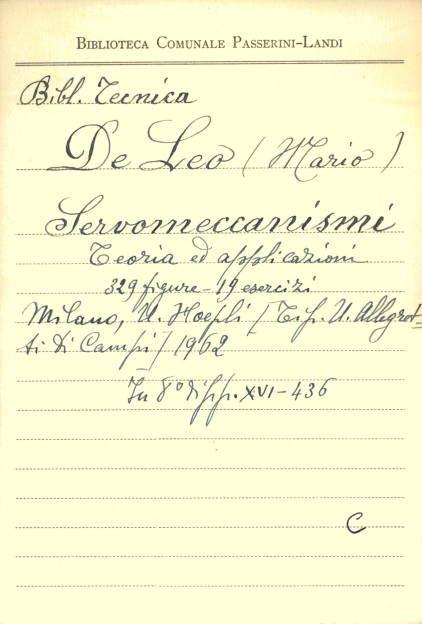 BIBLIOTECA COMUNALE PASSERINI-LANDI
Bibl. Tecnica
De Leo (Mario)
Servomeccanismi
Teoria ed applicazioni
329 figure - 19 esercizi
Milano, U. Hoepli [Tip. U. Allegret-
ti di Campi] 1962
In 8° di pp. XVI-436
C